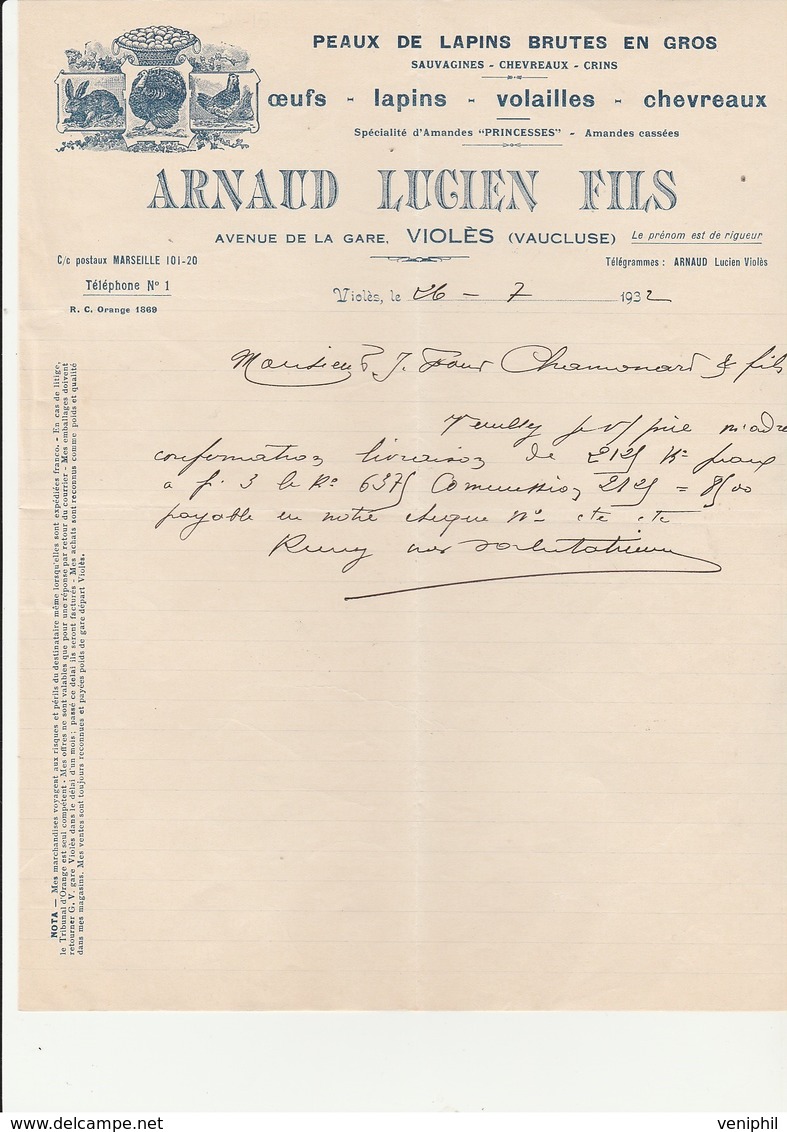 PEAUX DE LAPINS BRUTES EN GROS
SAUVAGINES - CHEVREAUX - CRINS
œufs - lapins - volailles - chevreaux
Spécialité d'Amandes "PRINCESSES" - Amandes cassées
ARNAUD LUCIEN FILS
AVENUE DE LA GARE, VIOLÈS (VAUCLUSE) Le prénom est de rigueur
C/c postaux MARSEILLE 101-20
Télégrammes : ARNAUD Lucien Violès
Téléphone N° 1
Violès, le 26 - 7 1932
R. C. Orange 1869
Monsieur J. Chamonard & fils
confirmation livraison de 2125 K° peaux
a f. 3 le K° 6375 Commission 2125 = 8500
payable en notre cheque N° etc etc
nos salutations
NOTA — Mes marchandises voyagent aux risques et périls du destinataire même lorsqu'elles sont expédiées franco. - En cas de litige,
le Tribunal d'Orange est seul compétent - Mes offres ne sont valables que pour une réponse par retour du courrier - Mes emballages doivent
retourner G. V. gare Violès dans le délai d'un mois; passé ce délai ils seront facturés - Mes achats sont reconnus comme poids et qualité
dans mes magasins. Mes ventes sont toujours reconnues et payées poids de gare départ Violès.
veniphil